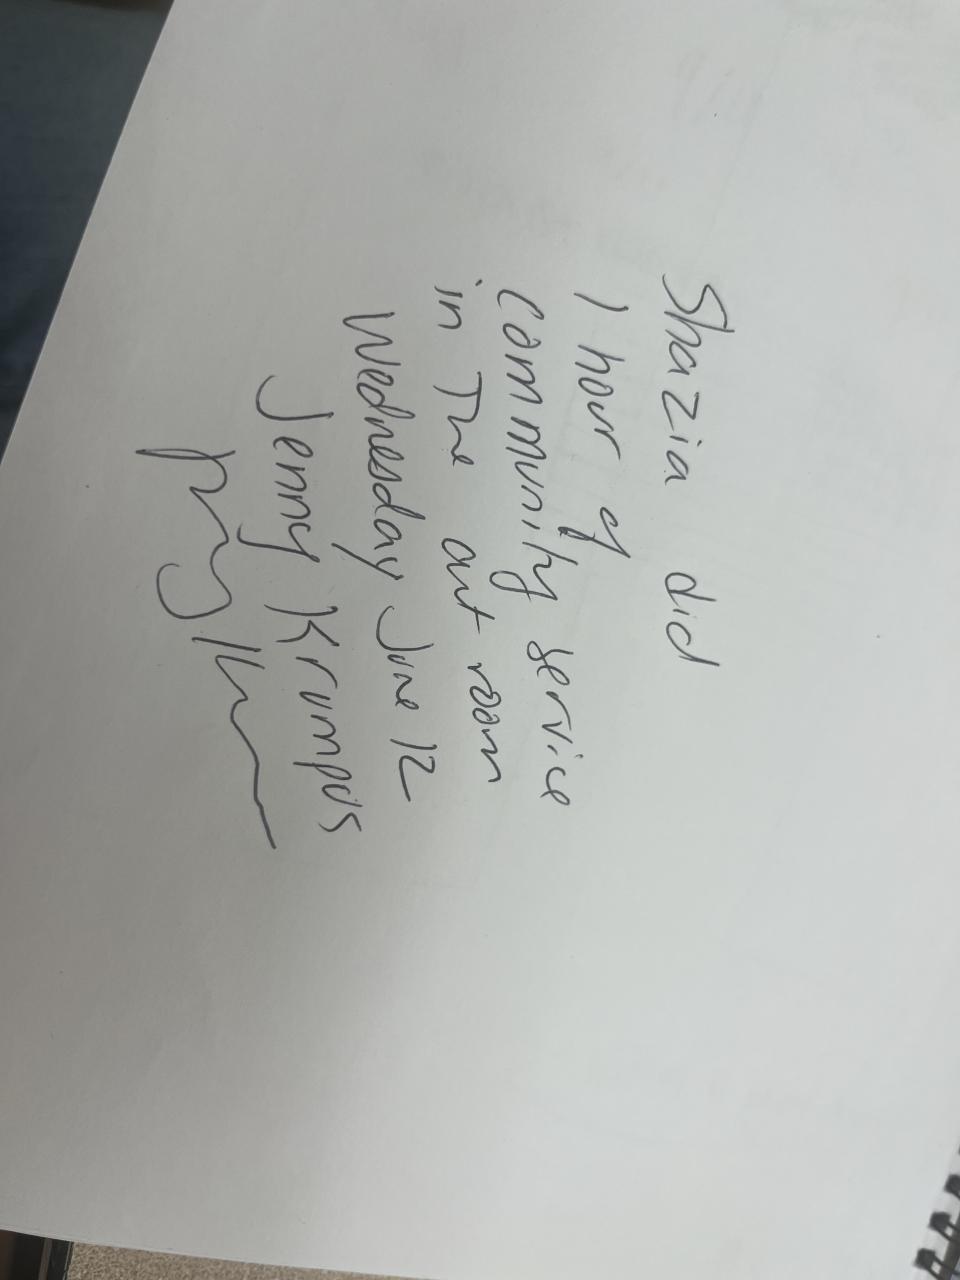 Shazia did
1 hour of
Community service
in The art room
Wednesday June 12
Jenny Krumpos